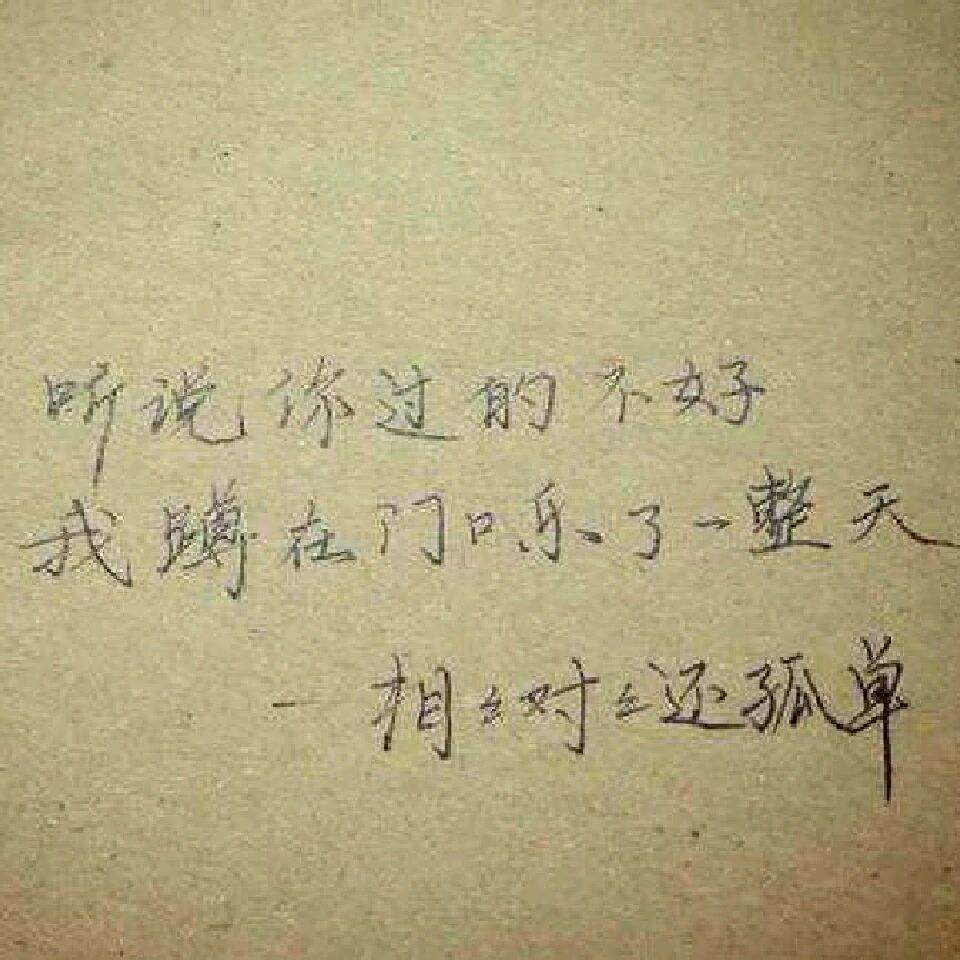 听说你过的不好
我蹲在门口乐了一整天
一相纟对纟还孤单